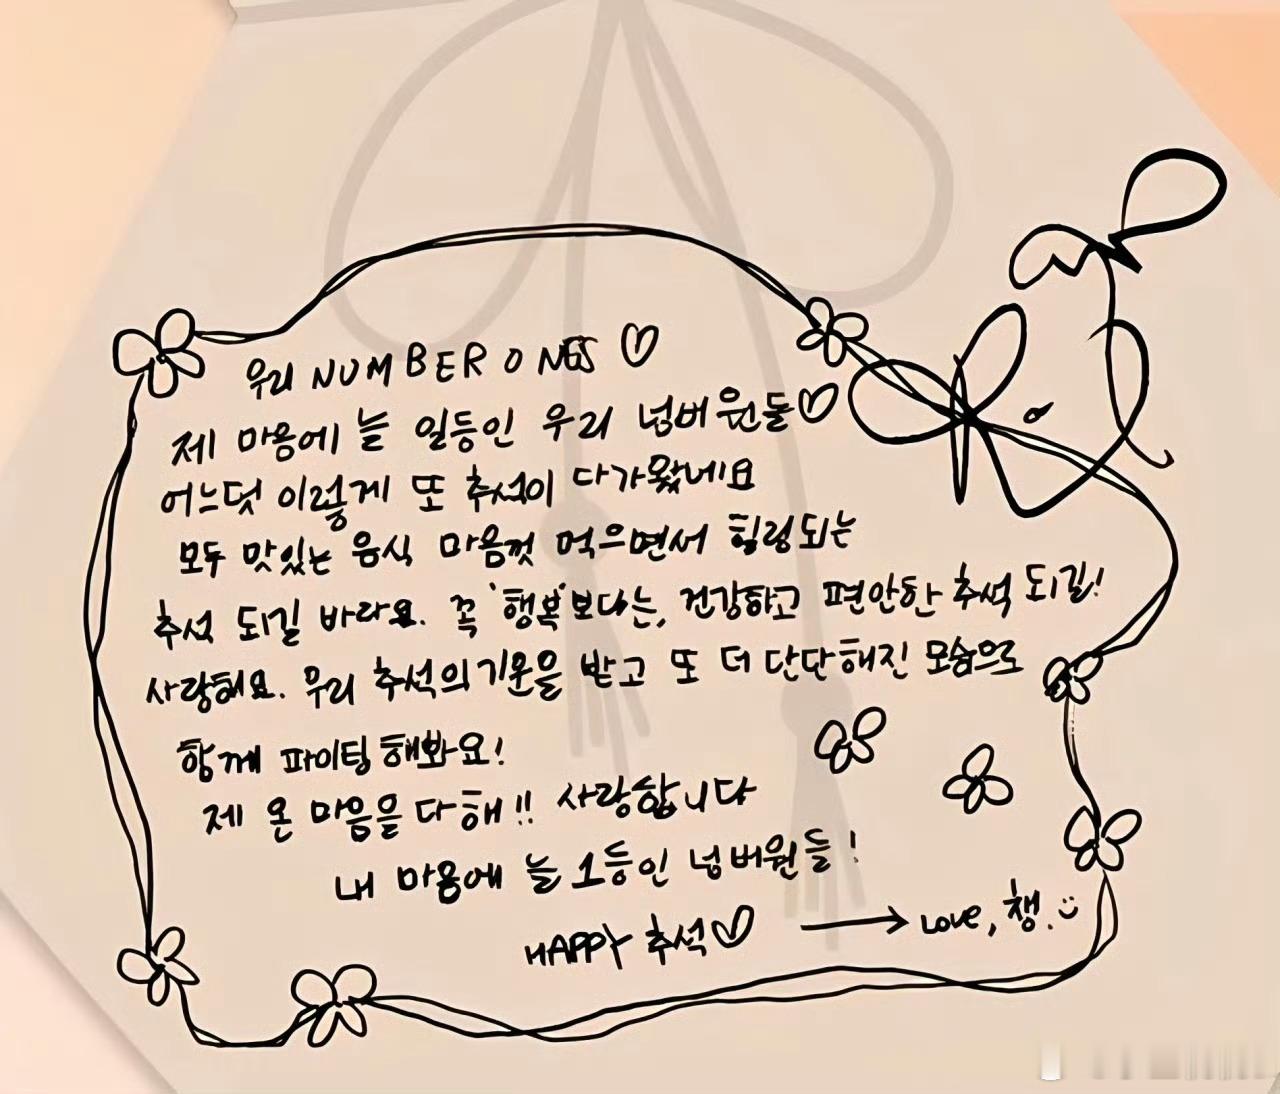 우리 NUMBER ONES ♡
제 마음에 늘 일등인 우리 넘버원들♡
어느덧 이렇게 또 추석이 다가왔네요
모두 맛있는 음식 마음껏 먹으면서 힐링되는
추석 되길 바라요. 꼭 '행복'보다는, 건강하고 편안한 추석 되길!
사랑해요. 우리 추석의 기운을 받고 또 더 단단해진 모습으로
함께 파이팅 해봐요!
제 온 마음을 다해!! 사랑합니다
내 마음에 늘 1등인 넘버원들!
HAPPY 추석♡ → LOVE, 챙. :)